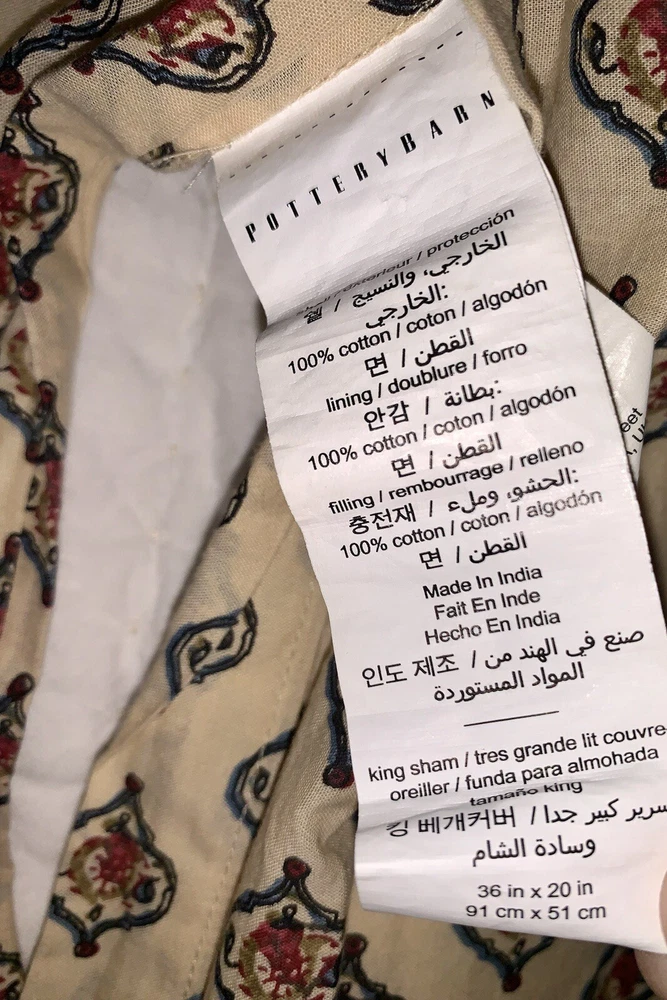 POTTERYBARN
exterieur / protección
쉘 / الخارجي، والنسيج
الخارجي:
100% cotton / coton / algodón
면 / القطن
lining / doublure / forro
안감 / بطانة:
100% cotton / coton / algodón
면 / القطن
filling / rembourrage / relleno
충전재 / الحشو، وملء:
100% cotton / coton / algodón
면 / القطن
Made In India
Fait En Inde
Hecho En India
인도 제조 / صنع في الهند من
المواد المستوردة
king sham / tres grande lit couvre-
oreiller / funda para almohada
tamaño king
킹 베개커버 / سرير كبير جدا
وسادة الشام
36 in x 20 in
91 cm x 51 cm